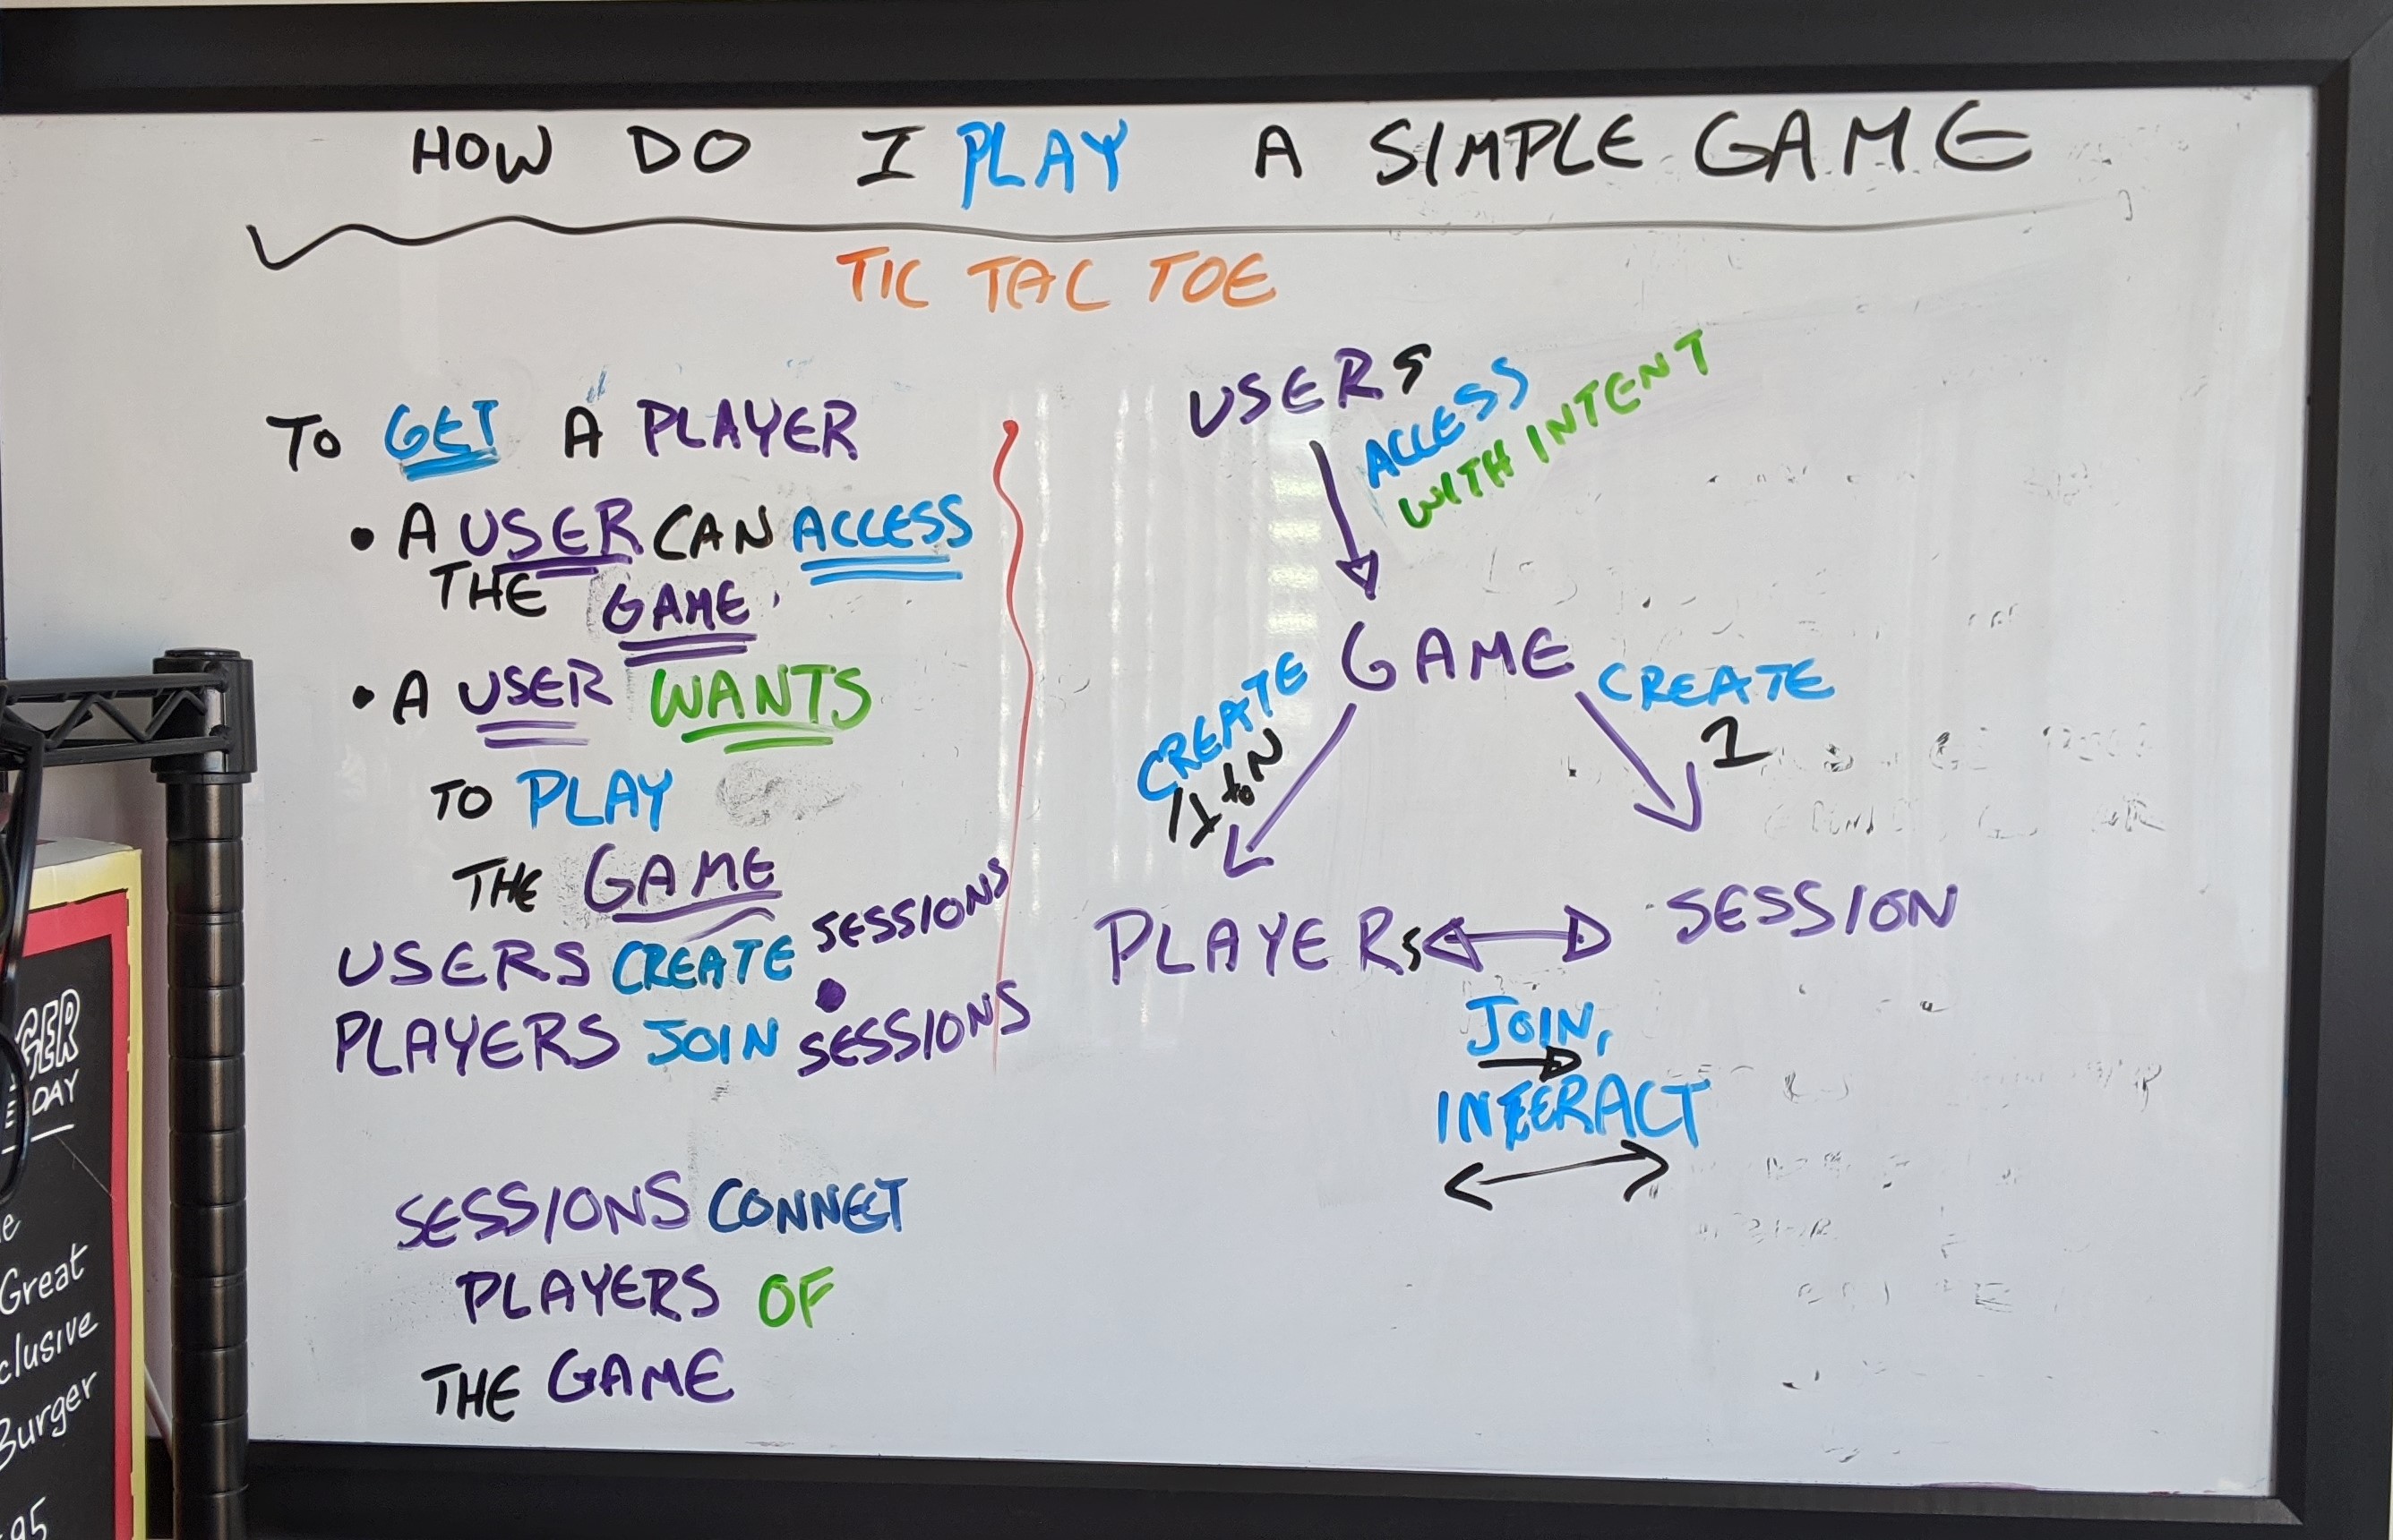 HOW DO I PLAY A SIMPLE GAME
TIC TAC TOE
TO GET A PLAYER
• A USER CAN ACCESS
THE GAME.
• A USER WANTS
TO PLAY
THE GAME
USERS CREATE SESSIONS
PLAYERS JOIN SESSIONS
SESSIONS CONNECT
PLAYERS OF
THE GAME
USERS
ACCESS
WITH INTENT
GAME
CREATE
1 to N
CREATE
1
PLAYERS
SESSION
JOIN,
INTERACT
GER
DAY
Great
clusive
Burger
95